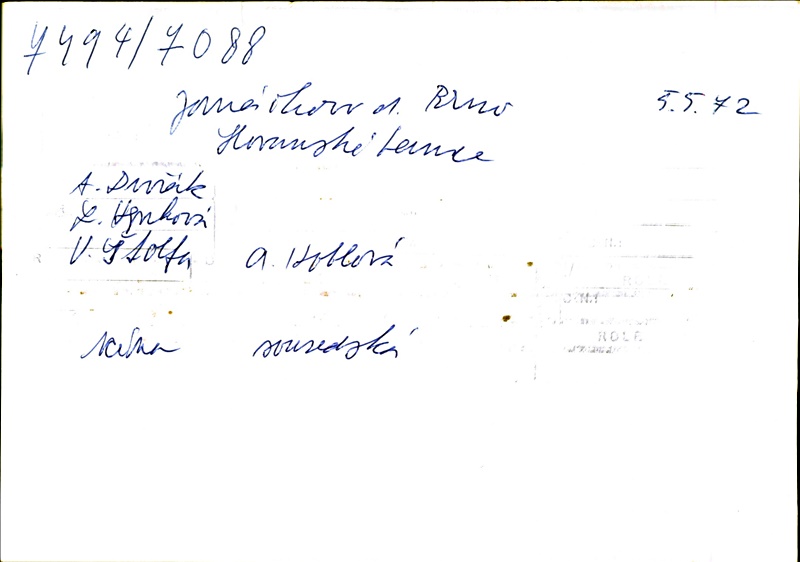 7494/7088
Janáčkovo d. Brno 5.5.72
Slovanské tance
A. Dvořák
L. Ogounová
V. Štolfa A. Hoblová
scéna sousedská
ROLE